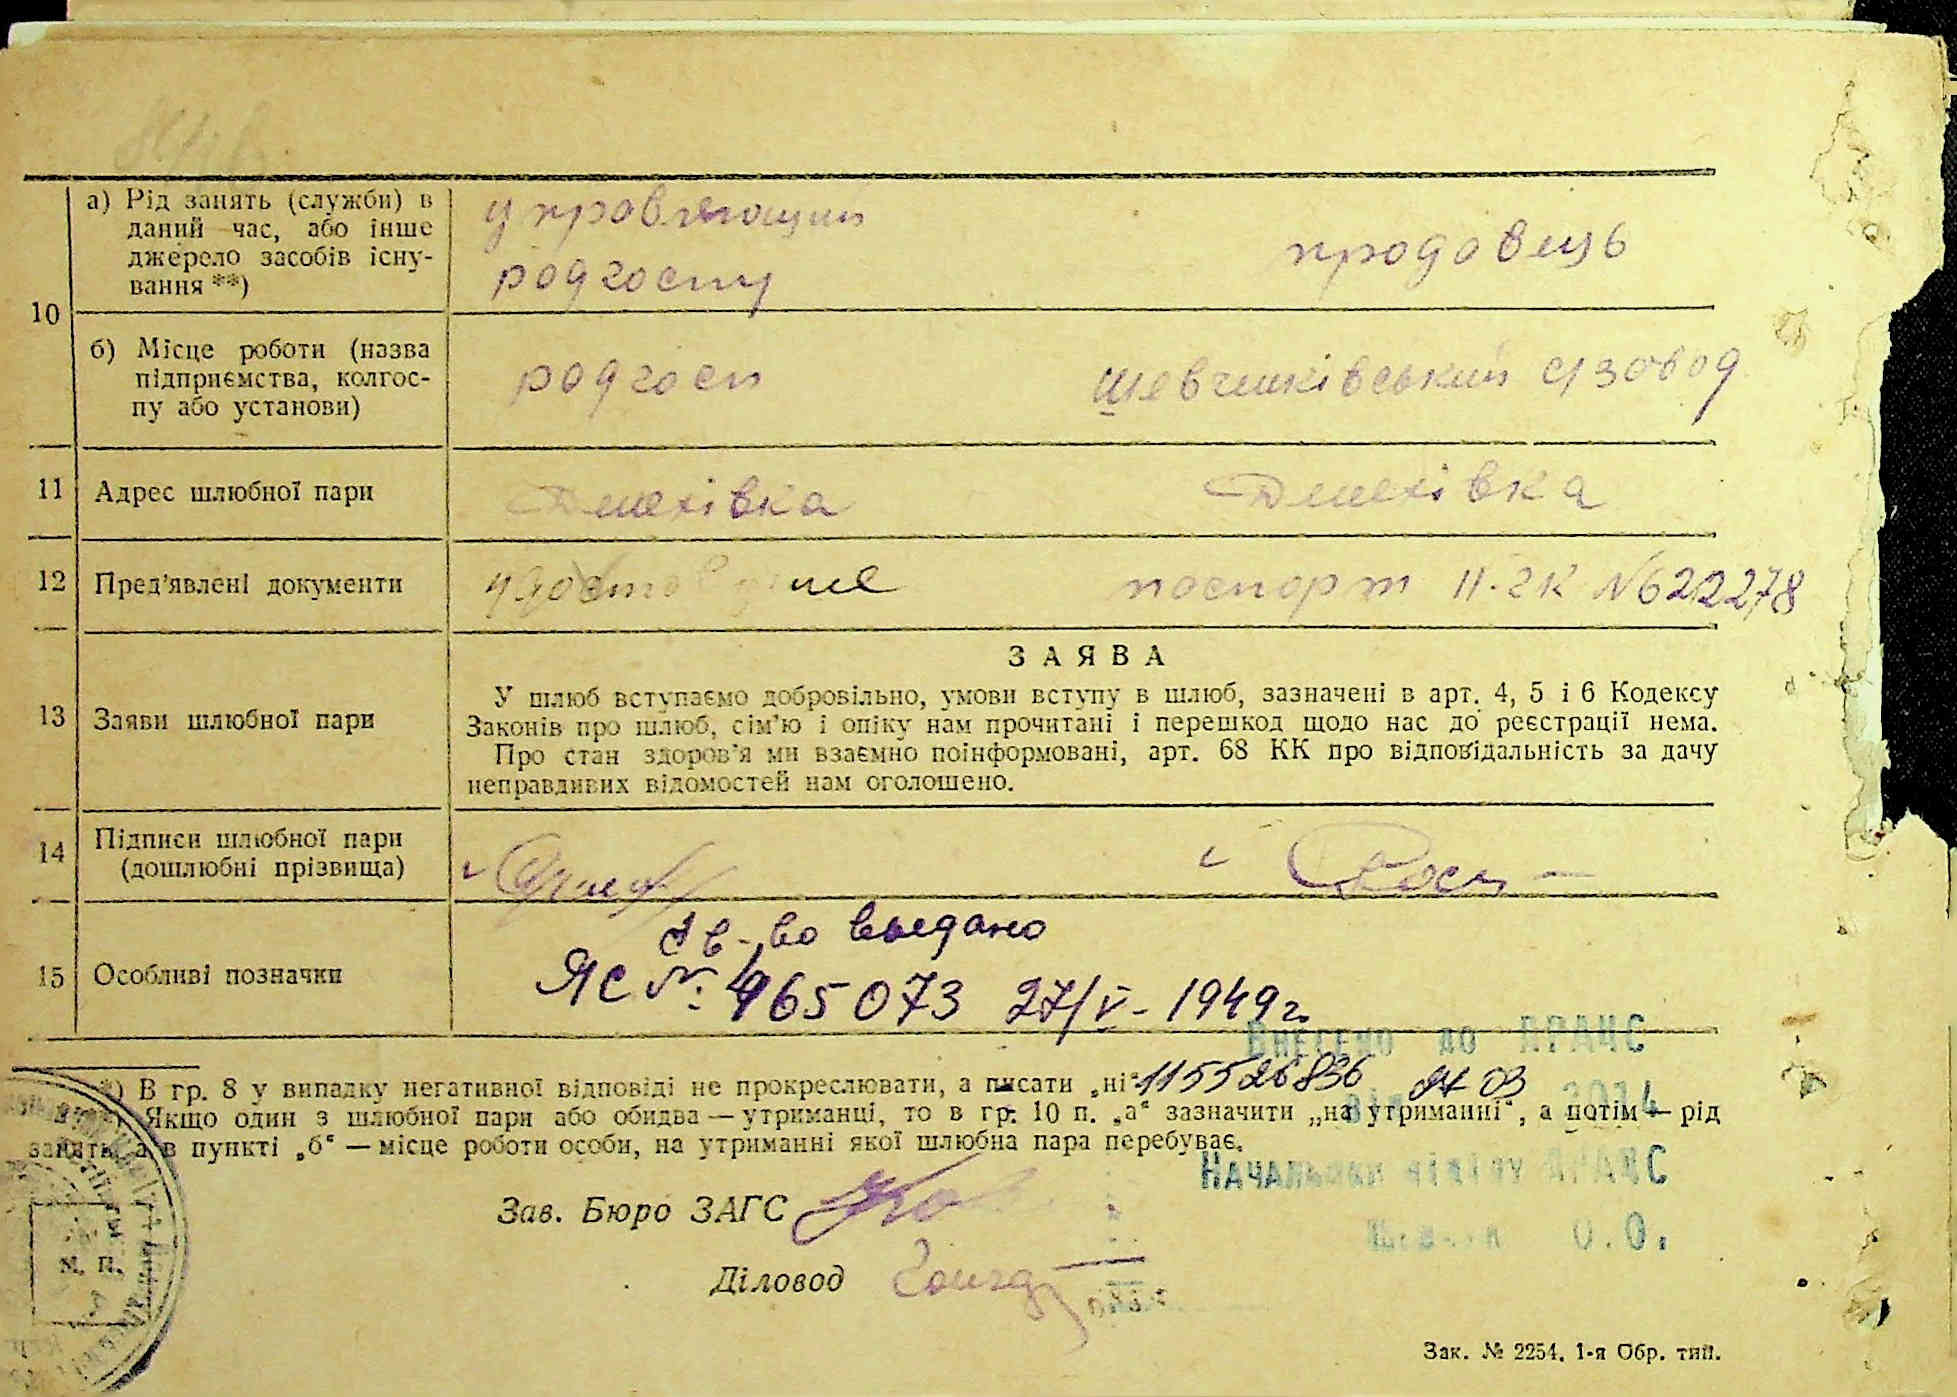 а) Рід занять (служби) в
даний час, або інше
джерело засобів існу-
вання **)
управляющий
родгоспу
продовець
10
б) Місце роботи (назва
підприємства, колгос-
пу або установи)
родгосп
Шевченківський с/завод
11 Адрес шлюбної пари
12 Пред'явлені документи паспорт
13 Заяви шлюбної пари
ЗАЯВА
У шлюб вступаємо добровільно, умови вступу в шлюб, зазначені в арт. 4, 5 і 6 Кодексу
Законів про шлюб, сім'ю і опіку нам прочитані і перешкод щодо нас до реєстрації нема.
Про стан здоров'я ми взаємно поінформовані, арт. 68 КК про відповідальність за дачу
неправдивих відомостей нам оголошено.
14 Підписи шлюбної пари
(дошлюбні прізвища)
15 Особливі позначки
Св-во выдано
ЯС №: 465073 27/V-1949 г.
Внесено до ДРАЦС
*) В гр. 8 у випадку негативної відповіді не прокреслювати, а писати „ні“ 2014
Якщо один з шлюбної пари або обидва — утриманці, то в гр. 10 п. „а“ зазначити „на утриманні“, а потім — рід
занять, а в пункті „б“ — місце роботи особи, на утриманні якої шлюбна пара перебуває.
Начальник відділу ДРАЦС
О.О.
Зав. Бюро ЗАГС
Діловод
М. П.
Зак. № 2254. 1-я Обр. тип.